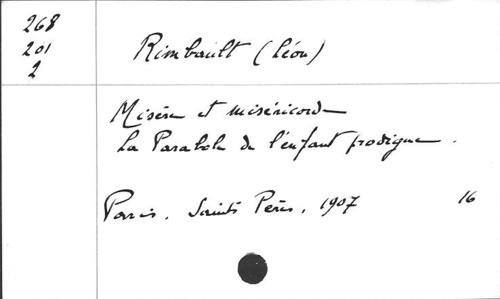 268
201
2
Rimbault (Léon)
Misère et miséricorde
La Parabole de l'enfant prodigue.
Paris. Saints Pères, 1907 16